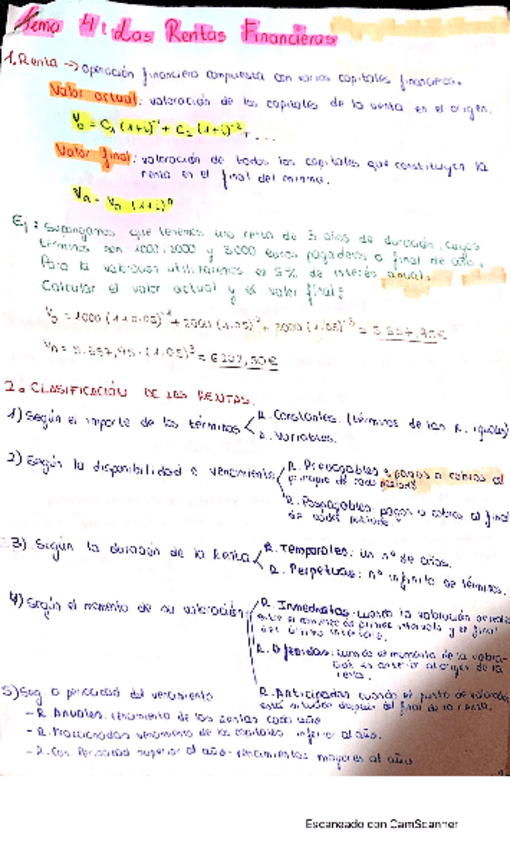 Tema 4: Las Rentas Financieras
1. Renta → operación financiera compuesta con varios capitales financieros.
Valor actual: valoración de los capitales de la renta en el origen.
V₀ = C₁ (1+i)⁻¹ + C₂ (1+i)⁻² + ...
Valor final: valoración de todos los capitales que constituyen la
renta en el final del mismo.
Vn = V₀ (1+i)ⁿ
Ej: Supongamos que tenemos una renta de 3 años de duración, cuyos
términos son 1000, 2000 y 3000 euros pagaderos a final de año.
Para la valoración utilizaremos el 5% de interés anual.
Calcular el valor actual y el valor final:
V₀ = 1000 (1+0.05)⁻¹ + 2000 (1.05)⁻² + 3000 (1.05)⁻³ = 5.357,95€
Vn = 5.357,95 · (1.05)³ = 6202,50€
2. CLASIFICACIÓN DE LAS RENTAS.
1) Según el importe de los términos
R. Constantes. (términos de las R. iguales)
R. Variables.
2) Según la disponibilidad o vencimiento
R. Prepagables: pagos o cobros al
principio de cada periodo
R. Pospagables: pagos o cobros al final
de cada periodo
3) Según la duración de la Renta
R. Temporales: un nº de años.
R. Perpetuas: nº infinito de términos.
4) Según el momento de su valoración
R. Inmediatas: cuando la valoración se
entre el comienzo de primer intervalo y el final
del último intervalo.
R. Diferidas: cuando el momento de la valora-
ción es anterior al origen de la
renta.
R. Anticipadas cuando el punto de valoración
está situado después del final de la renta.
5) Seg a periocidad del vencimiento
- R. Anuales: vencimiento de las rentas cada año
- R. Fraccionadas vencimiento de los capitales inferior al año.
- R. Con Periocidad superior al año - vencimientos mayores al año
Escaneado con CamScanner